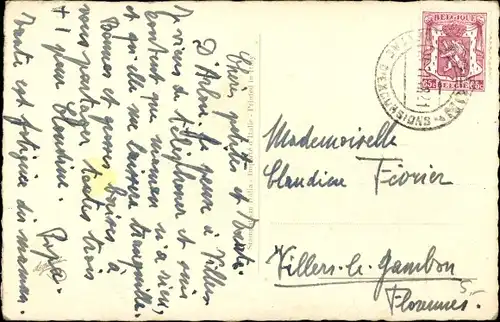 Chère petites et Tante.
D'Arlon, je pense à Villers
Je viens de téléphoner et suis
content que maman n'a rien,
et qu'elle me laissera tranquille.
Bonnes et grosses baises à
vous partager toutes trois
+ 1 pour Claudine. Papa.
Tante est fatiguée du maman.
BELGIQUE
BELGIE
Mademoiselle
Claudine Février
Villers-le-Gambon
Florennes
5